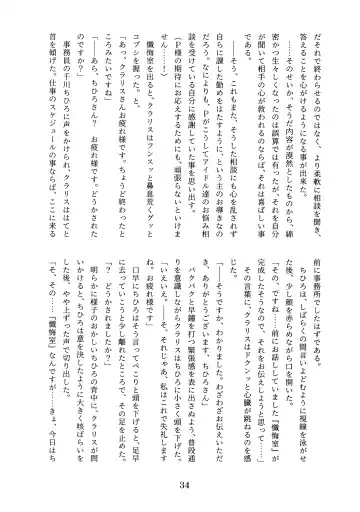 だそれで終わらせるのではなく、より柔軟に相談を聞き、
答えることを心がけるようになる事が出来た。
――そのせいか、そうだ内容が漠然としたものから、綿
密かつ生々しくなったのは誤算では有ったが、それを自分
が聞いて相手の心が救われるのならば、それは喜ばしい事
である。
――そう、これもまた、そうした相談にも心を乱されず
自らに課した勤めをはたすようにと、という主のお導きなの
だろう。なによりも、Pがこうしてアイドル達のお悩み相
談を受けている自分に感謝していた事を思い出す。
(P様の期待にお応えするためにも、頑張らないといけま
せん……！)
懺悔室を出ると、クラリスはフンスッと鼻息荒くグッと
コブシを握った、と、
「あっ、クラリスさんお疲れ様です。ちょうど終わったと
ころみたいですね」
「――あら、ちひろさん？　お疲れ様です。どうかされた
のですか？」
事務員の千川ちひろに声をかけられ、クラリスははてと
首を傾げた。仕事のスケジュールの事ならば、ここに来る
前に事務所でしたはずである。
ちひろは、しばらくの間言いよどむように視線を泳が
た後、少し顔を赤らめながら口を開いた。
「その、ですね……前にお話していました『懺悔室』が
完成したそうなので、それをお伝えしようと思って……」
その言葉に、クラリスはドクンッと心臓が跳ねるのを感
じた。
「――そうですか、わかりました。わざわざお伝えいただ
き、ありがとうございます、ちひろさん」
バクバクと早鐘を打つ緊張感を表に出さぬよう、普段通
りを意識しながらクラリスはちひろに小さく頭を下げた。
「いえいえ。……そ、それじゃあ、私はこれで失礼します
ね。お疲れ様です」
口早にちひろはそう言ってぺこりと頭を下げると、足早
に去っていこうと少し離れたところで、その足を止めた。
「？　どうかされましたか？」
明らかに様子のおかしいちひろの背中に、クラリスが問
いかけると、ちひろは意を決したように大きく咳ばらいを
した後、やや上ずった声で切り出した。
「そ、その……『懺悔室』なんですが……きょ、今日はち
34